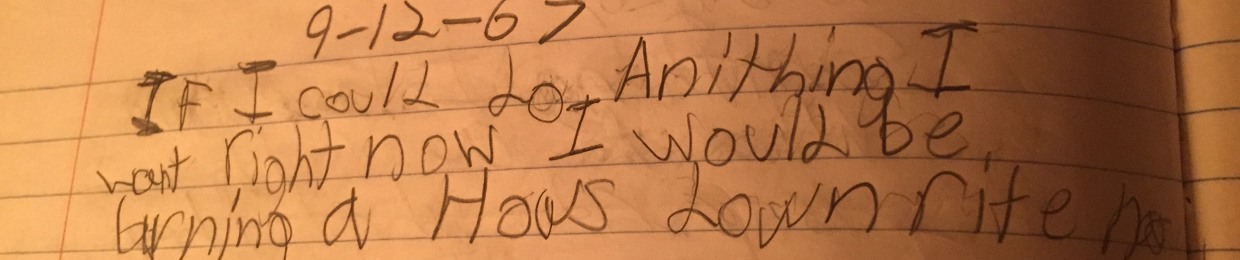 9-12-67
IF I could do Anithing I
want right now I would be
burning a Hows down rite